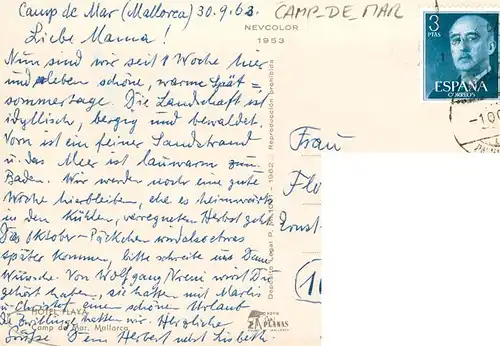 Camp de Mar (Mallorca) 30.9.63.
Liebe Mama!
Nun sind wir seit 1 Woche hier
und erleben schöne, warme Spät=
sommertage. Die Landschaft ist
idyllisch, bergig und bewaldet.
Vorn ist ein feiner Sandstrand
u. das Meer ist lauwarm zum
Baden. Wir werden noch eine gute
Woche hierbleiben, ehe es heimwärts
in den kühlen, verregneten Herbst geht.
Das Oktober-Päckchen wird also etwas
später kommen, bitte schreibe uns Deine
Wünsche. Von Wolfgang/Vreni wirst Du
gehört haben, sie hatten mit Marlis
u. Christof einen schönen Urlaub
Die Zwillinge hatten wir. Herzliche
Grüße Dein Herbert nebst Lisbeth
HOTEL PLAYA
Camp de Mar. Mallorca
CAMP-DE MAR
NEVCOLOR
1953
Reproducción prohibida
1962
FOTO
PLANAS
3
PTAS
ESPAÑA
CORREOS
Frau
Flo
Ernst-